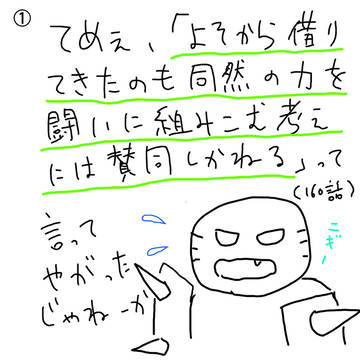 ①
てめぇ、「よそから借り
てきたのも同然の力を
闘いに組みこむ考え
には賛同しかねる」って
(160話)
言って
やがった
じゃねーか
ニギー